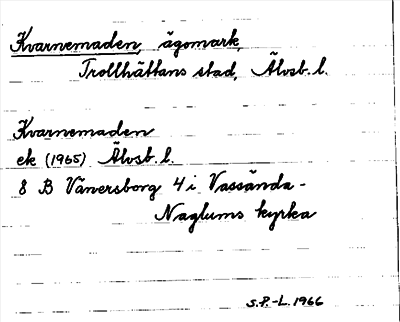 Kvarnemaden, ägomark,
Trollhättans stad, Älvsb. l.
Kvarnemaden
ek (1965) Älvsb. l.
8 B Vänersborg 4 i Vassända-
Naglums kyrka
S.P.-L. 1966